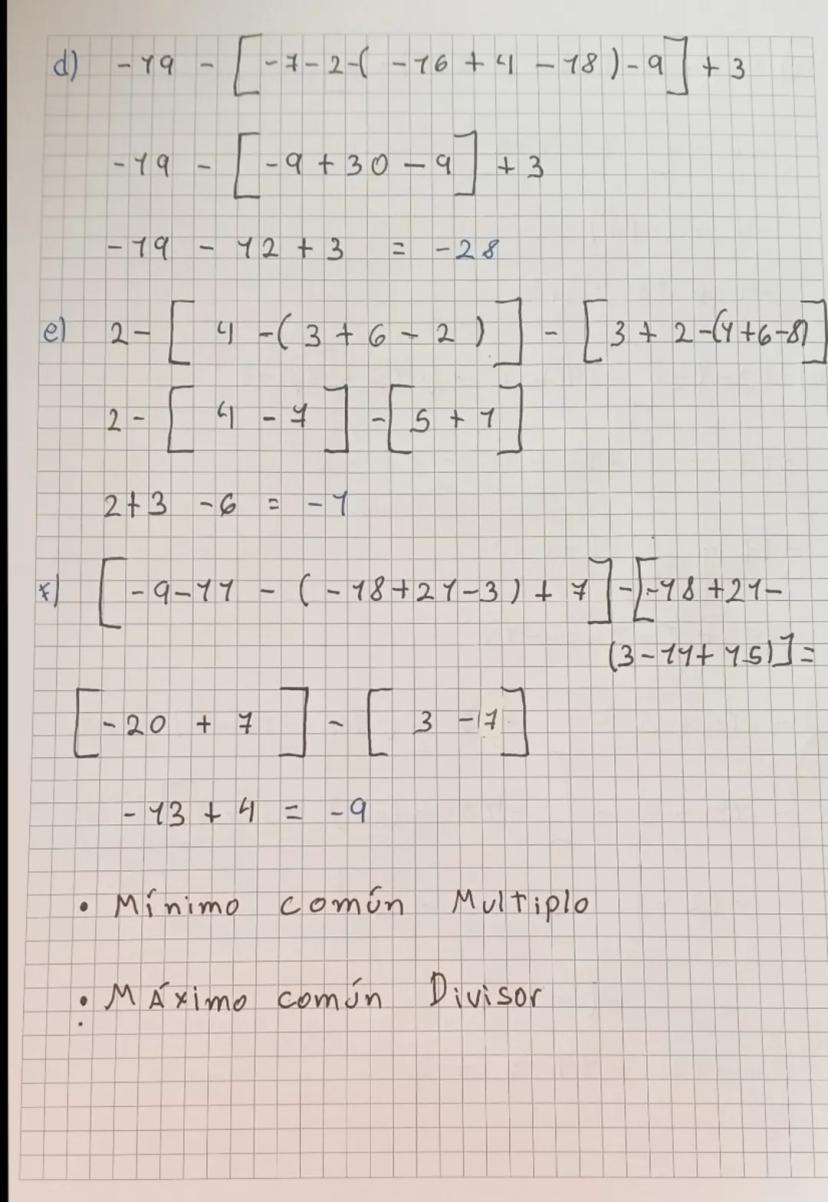 d) -19 - [-7-2-( -16 + 4 - 18)-9] + 3
-19 - [-9 + 30 - 9] + 3
-19 - 12 + 3 = -28
e) 2- [ 4 -(3 + 6 - 2 ) ] - [3 + 2-(1+6-8)]
2 - [ 4 - 7 ] -[5 + 1]
2+3 -6 = -1
f) [-9-11 - (-18+21-3) + 7]-[-18 +21-
(3-11+15)]=
[-20 + 7 ] - [ 3 -7]
-13 + 4 = -9
• Mínimo común Multiplo
• MÁximo común Divisor